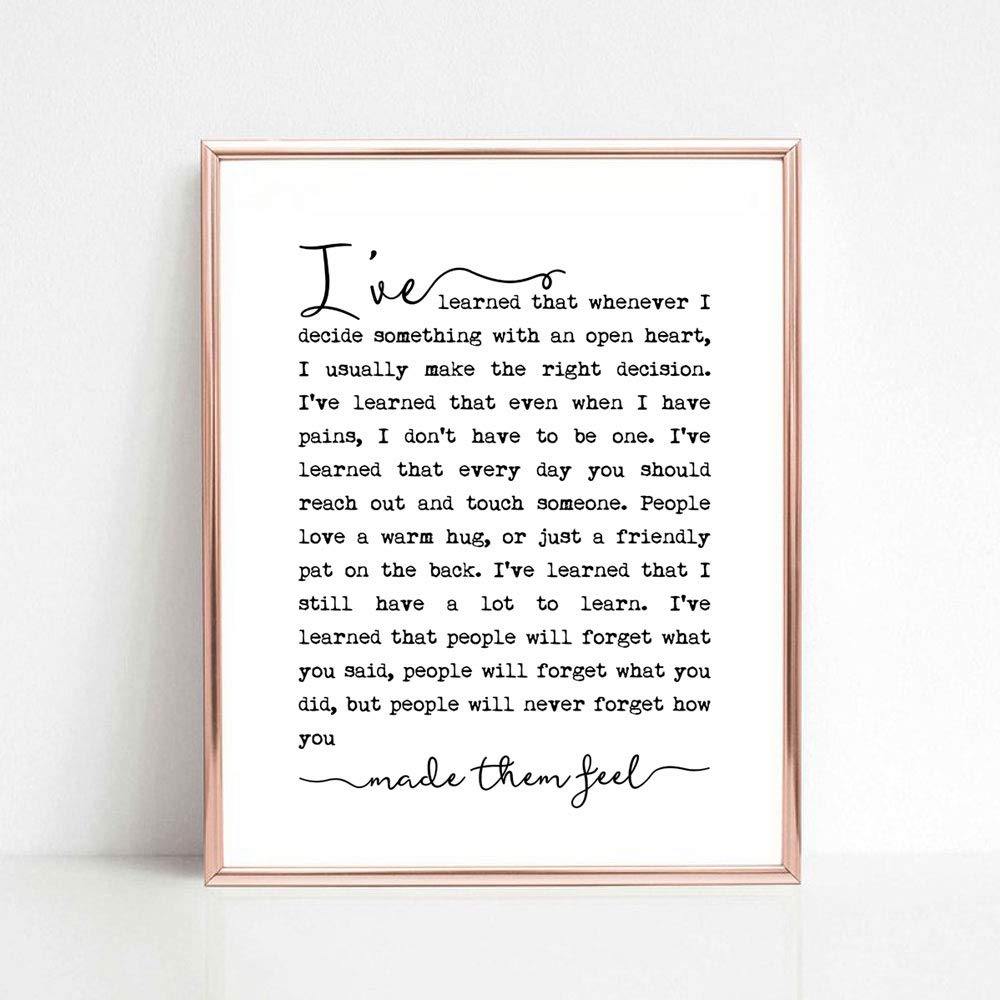 I've learned that whenever I
decide something with an open heart,
I usually make the right decision.
I've learned that even when I have
pains, I don't have to be one. I've
learned that every day you should
reach out and touch someone. People
love a warm hug, or just a friendly
pat on the back. I've learned that I
still have a lot to learn. I've
learned that people will forget what
you said, people will forget what you
did, but people will never forget how
you
made them feel